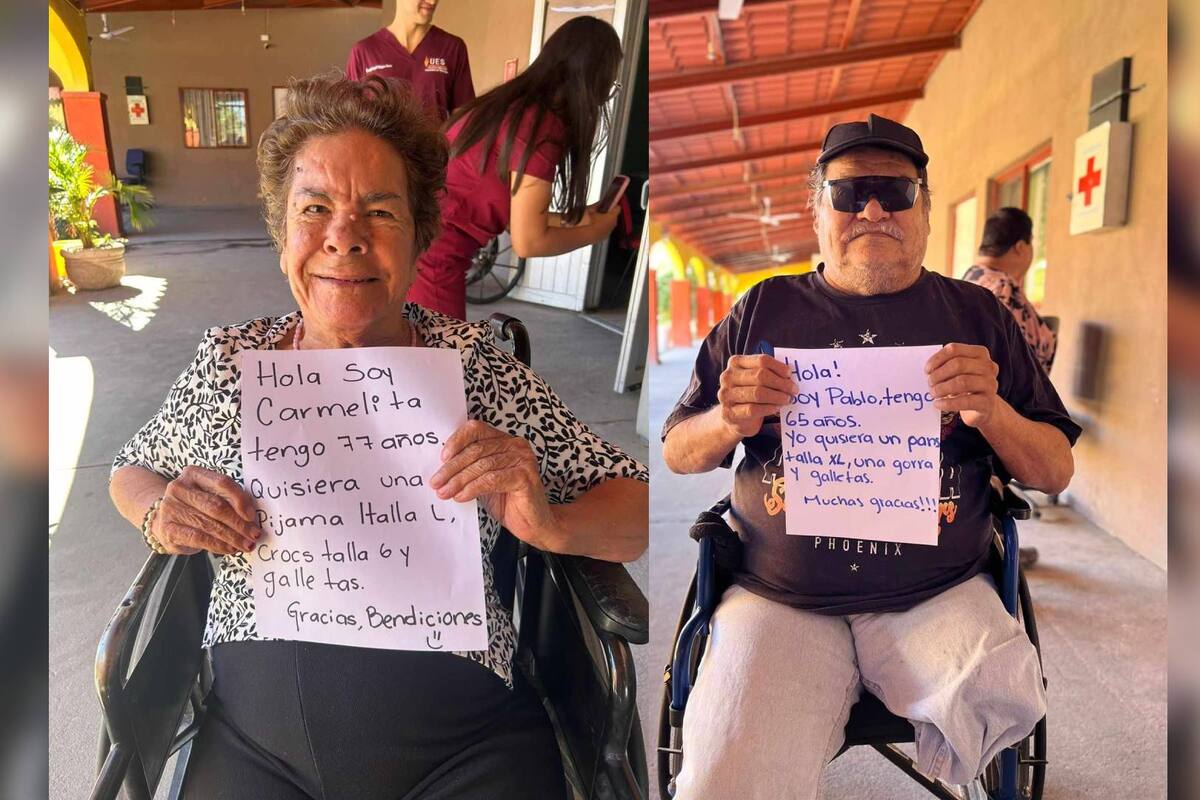 UES
Hola Soy
Carmelita
tengo 77 años.
Quisiera una
Pijama talla L,
Crocs talla 6 y
galletas.
Gracias, Bendiciones
Hola!
Soy Pablo, tengo
65 años.
Yo quisiera un pans
talla XL, una gorra
y galletas.
Muchas gracias!!!
PHOENIX